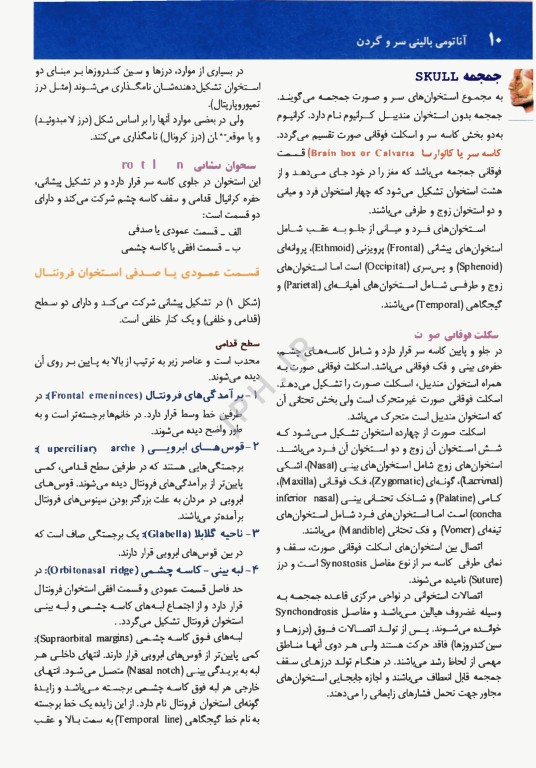 ۱۰ آناتومی بالینی سر و گردن
جمجمه SKULL
به مجموع استخوان‌های سر و صورت جمجمه می‌گویند.
جمجمه بدون استخوان مندیبل کرانیوم نام دارد. کرانیوم
به‌دو بخش کاسه سر و اسکلت فوقانی صورت تقسیم می‌گردد.
کاسه سر یا کالواریا (Brain box or Calvaria) قسمت
فوقانی جمجمه می‌باشد که مغز را در خود جای می‌دهد و از
هشت استخوان تشکیل می‌شود که چهار استخوان فرد و میانی
و دو استخوان زوج و طرفی می‌باشند.
استخوان‌های فرد و میانی از جلو به عقب شامل
استخوان‌های پیشانی (Frontal) پرویزنی (Ethmoid)، پروانه‌ای
(Sphenoid) و پس‌سری (Occipital) است اما استخوان‌های
زوج و طرفی شامل استخوان‌های آهیانه‌ای (Parietal) و
گیجگاهی (Temporal) می‌باشند.
سکلت فوقانی صو ت
در جلو و پایین کاسه سر قرار دارد و شامل کاسه‌های چشم،
حفره‌ی بینی و فک فوقانی می‌باشد. اسکلت فوقانی صورت به
همراه استخوان مندیبل، اسکلت صورت را تشکیل می‌دهد.
اسکلت فوقانی صورت غیرمتحرک است ولی بخش تحتانی آن
که استخوان مندیبل است متحرک می‌باشد.
اسکلت صورت از چهارده استخوان تشکیل می‌شود که
شش استخوان آن زوج و دو استخوان آن فرد می‌باشد.
استخوان‌های زوج شامل استخوان‌های بینی (Nasal)، اشکی
(Lacrimal)، گونه‌ای (Zygomatic)، فک فوقانی (Maxilla)،
کامی (Palatine) و شاخک تحتانی بینی (inferior nasal
concha) است اما استخوان‌های فرد شامل استخوان‌های
تیغه‌ای (Vomer) و فک تحتانی (Mandible) می‌باشند.
اتصال بین استخوان‌های اسکلت فوقانی صورت، سقف و
نمای طرفی کاسه سر از نوع مفاصل Synostosis است و درز
(Suture) نامیده می‌شوند.
اتصالات استخوانی در نواحی مرکزی قاعده جمجمه به
وسیله غضروف هیالین می‌باشد و مفاصل Synchondrosis
خوانده می‌شوند. پس از تولد اتصالات فوق (درزها و
سین‌کندروزها) فاقد حرکت هستند ولی هر دوی آنها مناطق
مهمی از لحاظ رشد می‌باشند. در هنگام تولد درزهای سقف
جمجمه قابل انعطاف می‌باشند و اجازه جابجایی استخوان‌های
مجاور جهت تحمل فشارهای زایمانی را می‌دهند.
در بسیاری از موارد، درزها و سین کندروزها بر مبنای دو
استخوان تشکیل‌دهنده‌شان نامگذاری می‌شوند (مثل درز
تمپوروپاریتال).
ولی در بعضی موارد آنها را بر اساس شکل (درز لامبدوئید)
و یا موقعیت‌شان (درز کرونال) نامگذاری می‌کنند.
ستخوان پیشانی
این استخوان در جلوی کاسه سر قرار دارد و در تشکیل پیشانی،
حفره کرانیال قدامی و سقف کاسه چشم شرکت می‌کند و دارای
دو قسمت است:
الف ـ قسمت عمودی یا صدفی
ب ـ قسمت افقی یا کاسه چشمی
قسمت عمودی یا صدفی استخوان فرونتال
(شکل ۱) در تشکیل پیشانی شرکت می‌کند و دارای دو سطح
(قدامی و خلفی) و یک کنار خلفی است.
سطح قدامی
محدب است و عناصر زیر به ترتیب از بالا به پایین بر روی آن
دیده می‌شوند.
۱- برآمدگی‌های فرونتال (Frontal emeninces): در
طرفین خط وسط قرار دارد. در خانم‌ها برجسته‌تر است و به
طور واضح دیده می‌شوند.
۲- قوس‌های ابرویی (uperciliary arche):
برجستگی‌هایی هستند که در طرفین سطح قدامی، کمی
پایین‌تر از برآمدگی‌های فرونتال دیده می‌شوند. قوس‌های
ابرویی در مردان به علت بزرگتر بودن سینوس‌های فرونتال
برآمده‌تر می‌باشند.
۳- ناحیه گلابلا (Glabella): یک برجستگی صاف است که
در بین قوس‌های ابرویی قرار دارند.
۴- لبه بینی - کاسه چشمی (Orbitonasal ridge): در
حد فاصل قسمت عمودی و قسمت افقی استخوان فرونتال
قرار دارد و از اجتماع لبه‌های کاسه چشمی و لبه بینی
استخوان فرونتال تشکیل می‌گردد.
لبه‌های فوق کاسه چشمی (Supraorbital margins):
کمی پایین‌تر از قوس‌های ابرویی قرار دارند. انتهای داخلی هر
لبه به بریدگی بینی (Nasal notch) متصل می‌شود. انتهای
خارجی هر لبه فوق کاسه چشمی برجسته می‌باشد و زایدهٔ
گونه‌ای استخوان فرونتال نام دارد. از این زایده یک خط برجسته
به نام خط گیجگاهی (Temporal line) به سمت بالا و عقب